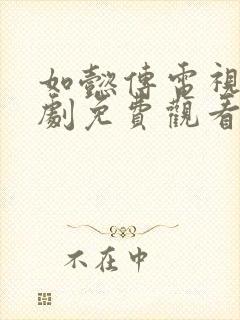 如懿傳電視
劇免費觀看
不在中